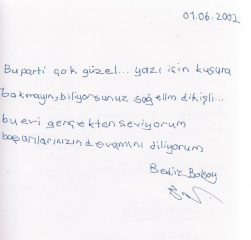 01.06.2002
Bu parti çok güzel... yazı için kusura
bakmayın, biliyorsunuz sağ elim dikişli...
bu evi gerçekten seviyorum
başarılarınızın devamını diliyorum
Bediz Balsoy